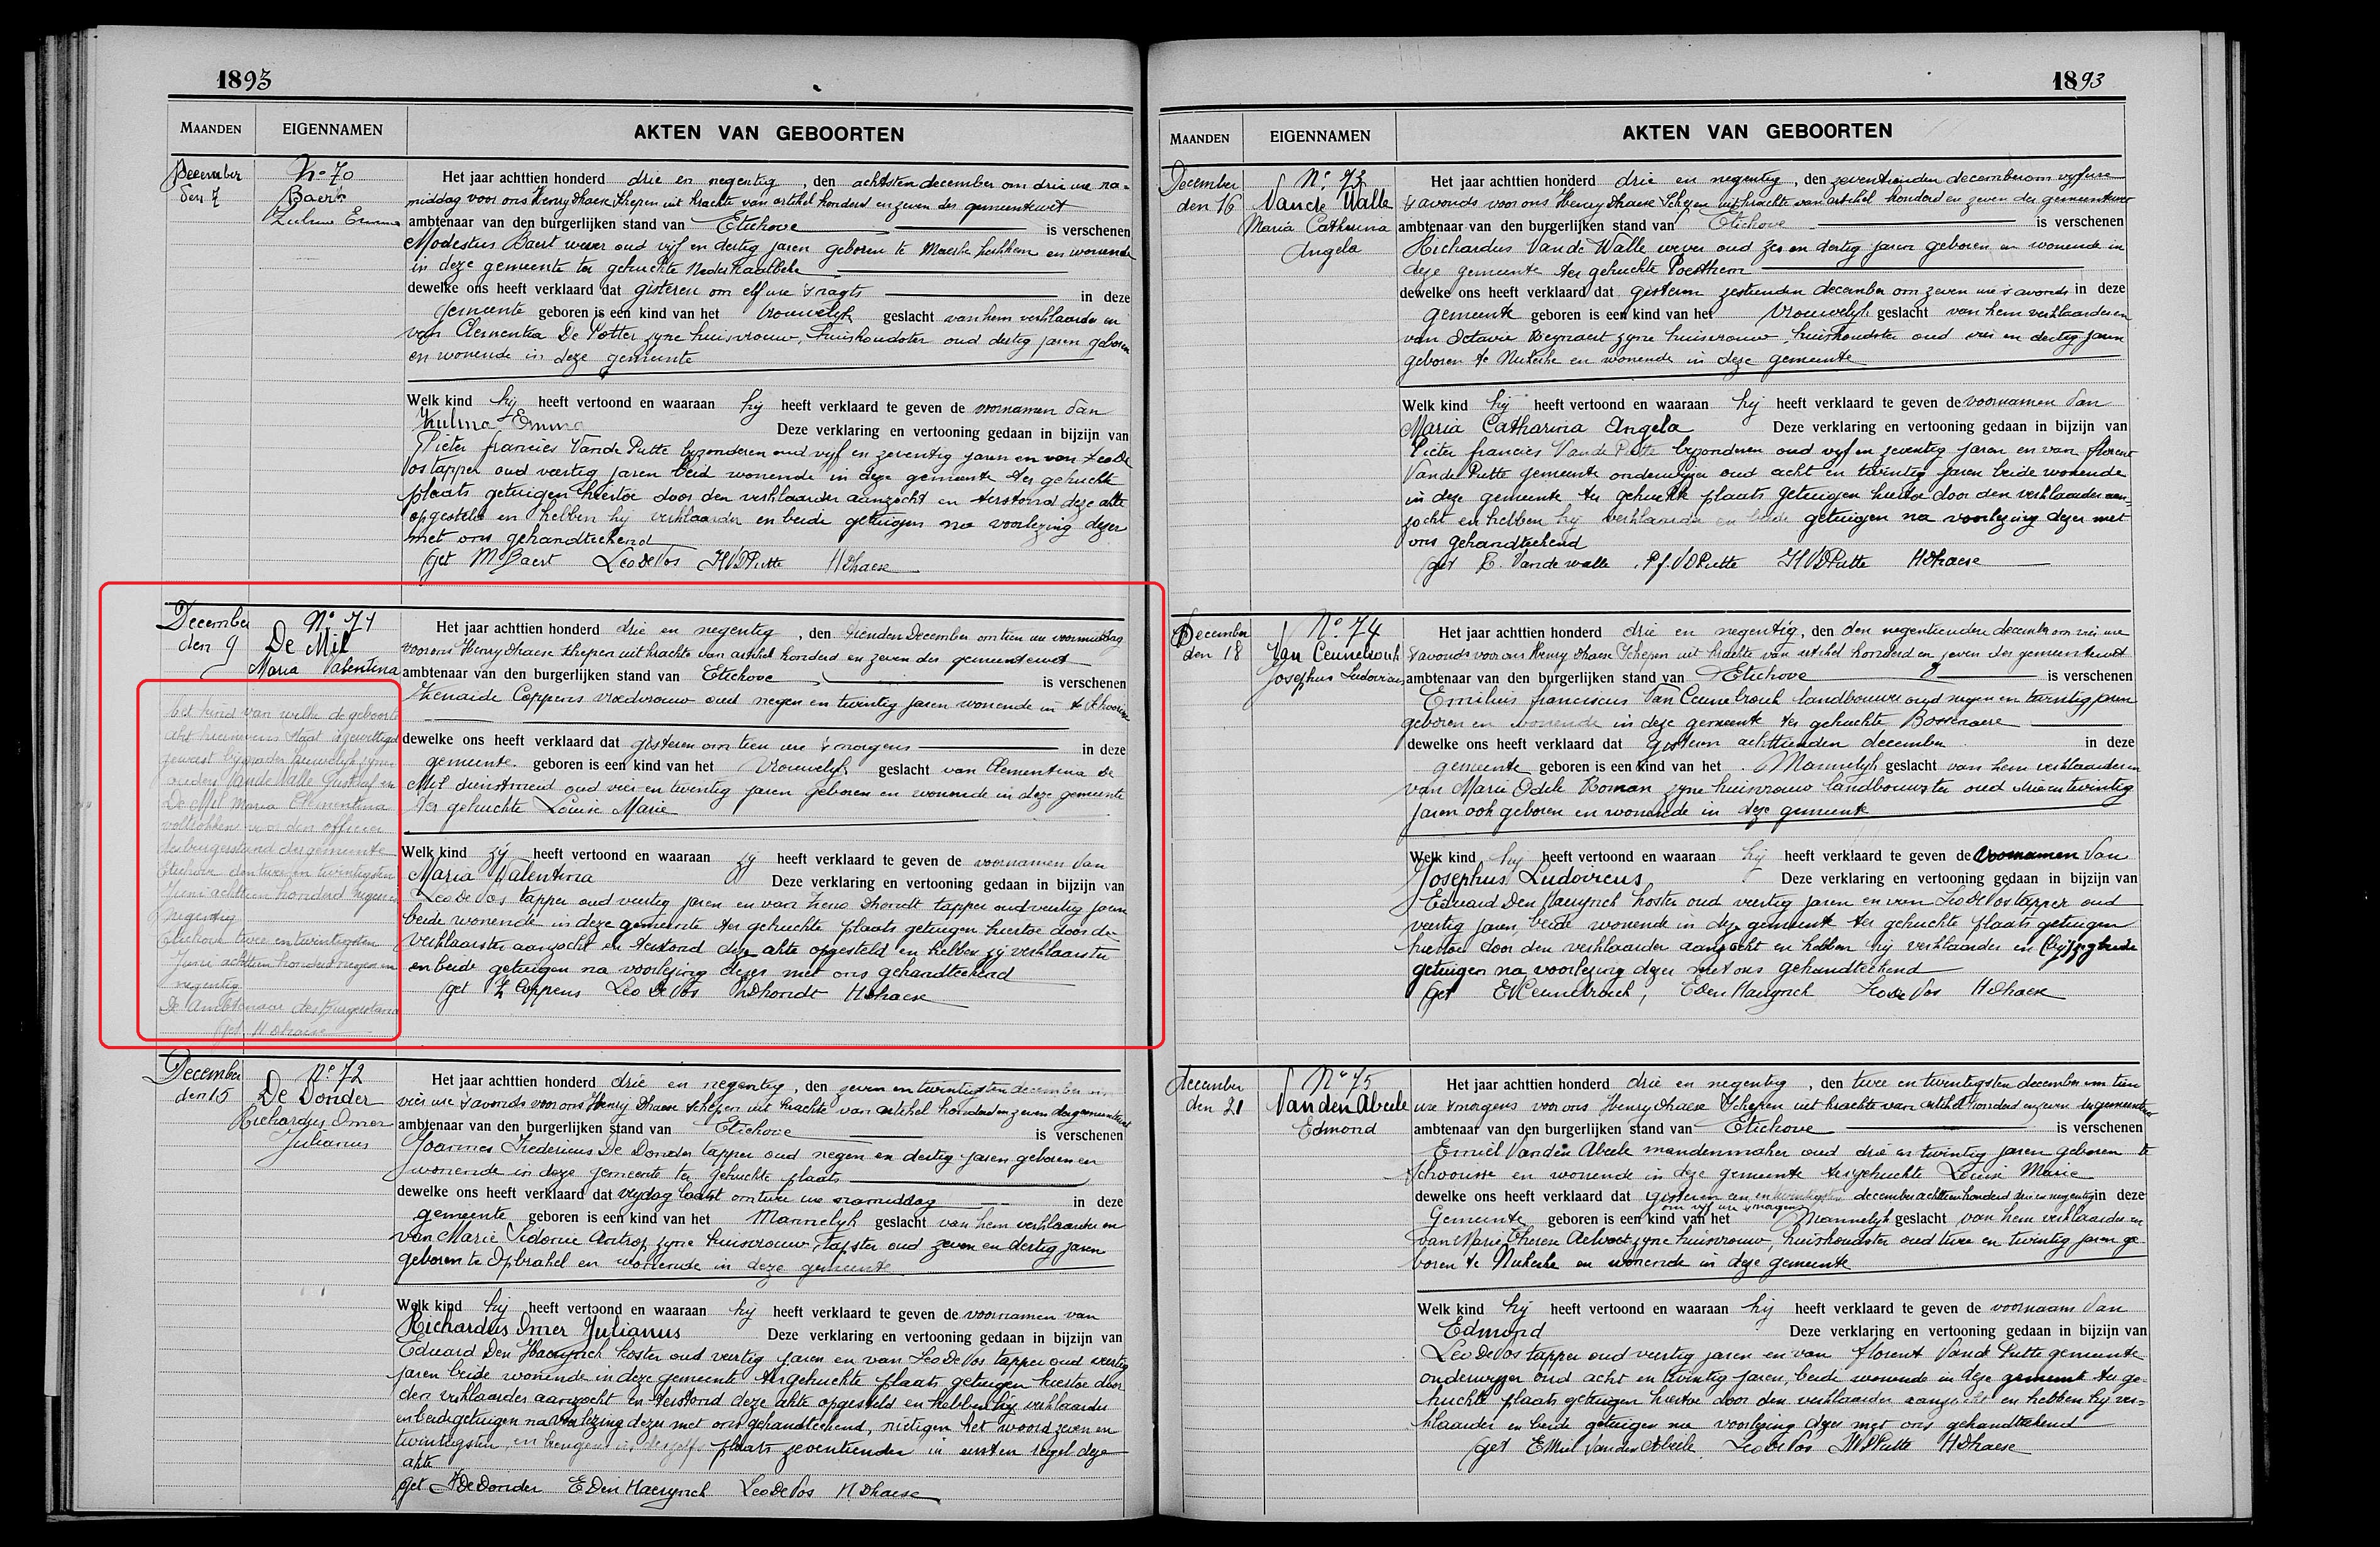 1893
MAANDEN EIGENNAMEN AKTEN VAN GEBOORTEN
December den 7
No 70
Baert
Zulma Emma
Het jaar achttien honderd drie en negentig, den achtsten december om drie ure na-
middag voor ons Henry Dhaese schepen uit krachte van artikel honderd en zeven der gemeentewet
ambtenaar van den burgerlijken stand van Etichove is verschenen
Modestus Baert wever oud vijf en dertig jaren geboren te Maerke kerkhem en wonende
in deze gemeente ter gehuchte Nederhaalbeke
dewelke ons heeft verklaard dat gisteren om elf ure 's nagts in deze
gemeente geboren is een kind van het vrouwelijk geslacht van hem verklaarder en
van Clementia De Potter zyne huisvrouw, huishoudster oud dertig jaren geboren
en wonende in deze gemeente
Welk kind hij heeft vertoond en waaraan hij heeft verklaard te geven de voornamen van
Zulma Emma Deze verklaring en vertooning gedaan in bijzijn van
Pieter francies Vande Putte byzonderen oud vyf en zeventig jaren en van Leo De
Vos tapper oud veertig jaren beid wonende in deze gemeente ter gehuchte
plaats getuigen hiertoe door den verklaarder aanzocht en terstond deze akte
opgesteld en hebben hij verklaarder en beide getuigen na voorlezing dezer
met ons gehandteekend
Get M Baert Leo De Vos VDPutte HDhaese
December den 9
No 71
De Mil
Maria Valentina
Het jaar achttien honderd drie en negentig, den tienden December om tien ure voormiddag
voor ons Henry Dhaese schepen uit krachte van artikel honderd en zeven der gemeentewet
ambtenaar van den burgerlijken stand van Etichove is verschenen
Zenaide Coppens vroedvrouw oud negen en twintig jaren wonende in te Schoorisse
dewelke ons heeft verklaard dat gisteren om tien ure 's morgens in deze
gemeente geboren is een kind van het vrouwelijk geslacht van Clementina De
Mil dienstmeid oud vier en twintig jaren geboren en wonende in deze gemeente
ter gehuchte Louise Marie
Welk kind zij heeft vertoond en waaraan zij heeft verklaard te geven de voornamen van
Maria Valentina Deze verklaring en vertooning gedaan in bijzijn van
Leo De Vos tapper oud veertig jaren en van Zeno Dhondt tapper oud veertig jaren
beide wonende in deze gemeente ter gehuchte plaats getuigen hiertoe door de
verklaarster aanzocht en terstond deze akte opgesteld en hebben zij verklaarster
en beide getuigen na voorlezing dezer met ons gehandteekend
get Z Coppens Leo De Vos Dhondt HDhaese
Het kind van welke de geboorte
akt hiernevens staat is gewettigd
geweest bij nader huwelijk zijner
ouders Vande Walle Gustaf en
De Mil Maria Clementina
voltrokken voor den officier
des burgerstand der gemeente
Etichove den twee en twintigsten
Juni achttien honderd negen en
negentig
Etichove twee en twintigsten
Juni achttien honderd negen en
negentig
De Ambtenaar des Burgerstand
Get. HDhaese
December den 15
No 72
De Donder
Richardus Omer
Julianus
Het jaar achttien honderd drie en negentig, den zeven en twintigsten december om
vier ure 's avonds voor ons Henry Dhaese schepen uit krachte van artikel honderd en zeven der gemeentewet
ambtenaar van den burgerlijken stand van Etichove is verschenen
Joannes Fredericus De Donder tapper oud negen en dertig jaren geboren en
wonende in deze gemeente ter gehuchte plaats
dewelke ons heeft verklaard dat vrydag laatst om twee ure namiddag in deze
gemeente geboren is een kind van het Mannelyk geslacht van hem verklaarder en
van Marie Sidonie Antrop zyne huisvrouw, tapster oud zeven en dertig jaren
geboren te Opbrakel en wonende in deze gemeente
Welk kind hij heeft vertoond en waaraan hij heeft verklaard te geven de voornamen van
Richardus Omer Julianus Deze verklaring en vertooning gedaan in bijzijn van
Eduard Den Haerynck koster oud veertig jaren en van Leo De Vos tapper oud veertig
jaren beide wonende in deze gemeente ter gehuchte plaats getuigen hiertoe door
den verklaarder aanzocht en terstond deze akte opgesteld en hebben hij verklaarder
en beide getuigen na voorlezing dezer met ons gehandteekend, nietigen het woord zeven en
twintigsten, en brengen in deszelfs plaats zeventienden in eersten regel deze
akte
Get DeDonder E Den Haerynck Leo De Vos HDhaese
1893
MAANDEN EIGENNAMEN AKTEN VAN GEBOORTEN
December den 16
No 73
Vande Walle
Maria Catharina
Angela
Het jaar achttien honderd drie en negentig, den zeventienden december om vyf ure
's avonds voor ons Henry Dhaese Schepen uit krachte van artikel honderd en zeven der gemeentewet
ambtenaar van den burgerlijken stand van Etichove is verschenen
Richardus Vande Walle wever oud zes en dertig jaren geboren en wonende in
deze gemeente ter gehuchte Poesthem
dewelke ons heeft verklaard dat gisteren zestienden december om zeven ure 's avonds in deze
gemeente geboren is een kind van het vrouwelijk geslacht van hem verklaarder en
van Octavie Weynaert zyne huisvrouw, huishoudster oud vier en dertig jaren
geboren te Nukerke en wonende in deze gemeente
Welk kind hij heeft vertoond en waaraan hij heeft verklaard te geven de voornamen van
Maria Catharina Angela Deze verklaring en vertooning gedaan in bijzijn van
Pieter francies Vande Putte byzonderen oud vyf en zeventig jaren en van florent
Vande Putte gemeente onderwyzer oud acht en twintig jaren beide wonende
in deze gemeente ter gehuchte plaats getuigen hiertoe door den verklaarder aan-
zocht en hebben hij verklaarder en beide getuigen na voorlezing dezer met
ons gehandteekend
get R. Vande walle P.f. VDPutte VDPutte HDhaese
December den 18
No 74
Van Ceunebrouk
Josephus Ludovicus
Het jaar achttien honderd drie en negentig, den den negentienden december om vier ure
's avonds voor ons Henry Dhaese Schepen uit krachte van artikel honderd en zeven der gemeentewet
ambtenaar van den burgerlijken stand van Etichove is verschenen
Emilius franciscus Van Ceunebrouk landbouwer oud negen en twintig jaren
geboren en wonende in deze gemeente ter gehuchte Bossenaere
dewelke ons heeft verklaard dat gisteren achttienden december in deze
gemeente geboren is een kind van het Mannelyk geslacht van hem verklaarder en
van Marie Odile Roman zyne huisvrouw landbouwster oud drie en twintig
jaren ook geboren en wonende in deze gemeente
Welk kind hij heeft vertoond en waaraan hij heeft verklaard te geven de voornamen van
Josephus Ludovicus Deze verklaring en vertooning gedaan in bijzijn van
Eduard Den Haerynck koster oud veertig jaren en van Leo De Vos tapper oud
veertig jaren, beide wonende in deze gemeente ter gehuchte plaats getuigen
hiertoe door den verklaarder aanzocht en hebben hij verklaarder en beide
getuigen na voorlezing dezer met ons gehandteekend
Get E Ceunebrouk, E Den Haerynck Leo De Vos HDhaese
december den 21
No 75
Van den Abeele
Edmond
Het jaar achttien honderd drie en negentig, den twee en twintigsten december om tien
ure 's morgens voor ons Henry Dhaese Schepen uit krachte van artikel honderd en zeven der gemeentewet
ambtenaar van den burgerlijken stand van Etichove is verschenen
Emiel Vanden Abeele mandenmaker oud drie en twintig jaren geboren te
Schoorisse en wonende in deze gemeente ter gehuchte Louise Marie
dewelke ons heeft verklaard dat gisteren een en twintigsten december achttien honderd drie en negentig in deze
om vyf ure 's morgens
Gemeente geboren is een kind van het Mannelyk geslacht van hem verklaarder en
van Marie Therese Aelvoet zyne huisvrouw, huishoudster oud twee en twintig jaren ge-
boren te Nukerke en wonende in deze gemeente
Welk kind hij heeft vertoond en waaraan hij heeft verklaard te geven de voornaam van
Edmond Deze verklaring en vertooning gedaan in bijzijn van
Leo De Vos tapper oud veertig jaren en van florent Vande Putte gemeente
onderwyzer oud acht en twintig jaren, beide wonende in deze gemeente ter ge-
huchte plaats getuigen hiertoe door den verklaarder aanzocht en hebben hij ver-
klaarder en beide getuigen na voorlezing dezer met ons gehandteekend
get Emiel Vanden Abeele Leo De Vos VDPutte HDhaese